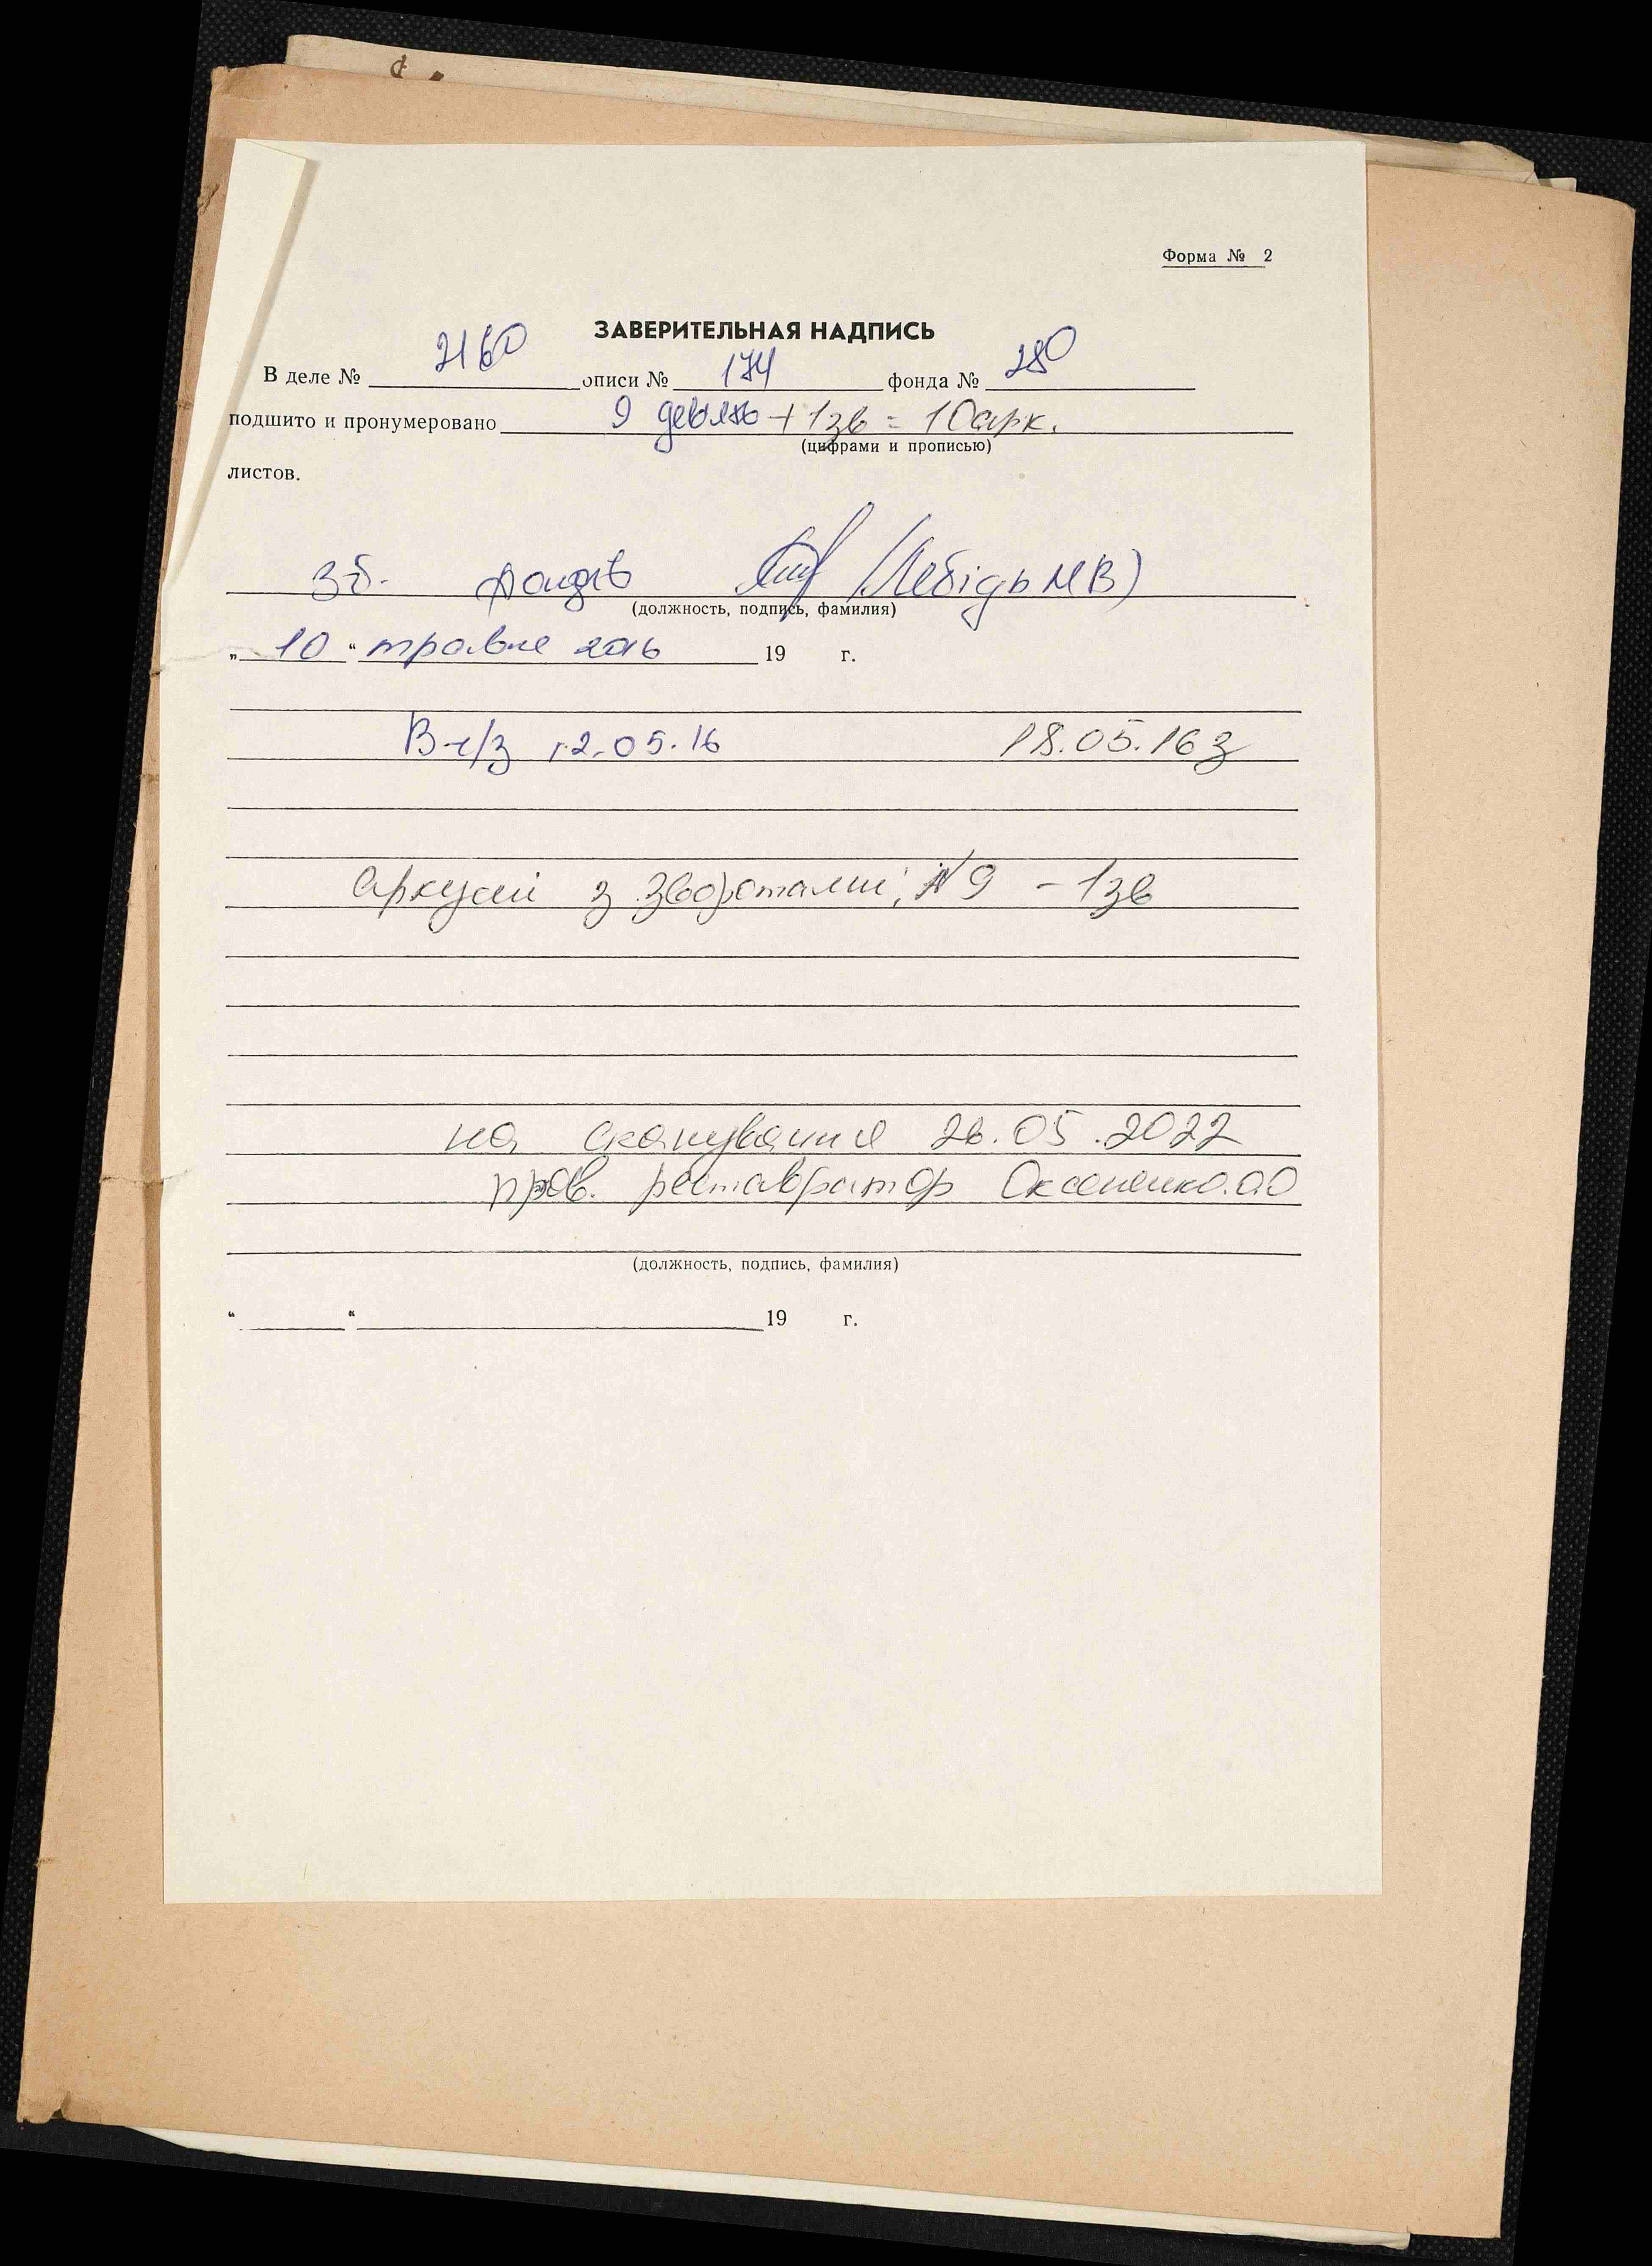 Форма № 2
ЗАВЕРИТЕЛЬНАЯ НАДПИСЬ
В деле № 2160 описи № 174 фонда № 280
подшито и пронумеровано 9 девять + 1зв = 10арк.
(цифрами и прописью)
листов.
Зб. фондів /Лебідь М В)
(должность, подпись, фамилия)
„ 10 “ травня 2016 19 г.
В ч/з 12.05.16 18.05.16 З
Аркуші з зворотами; № 9 - 1зв
на сканування 26.05.2022
пров. реставратор Оксененко.О.О
(должность, подпись, фамилия)
“ “ 19 г.